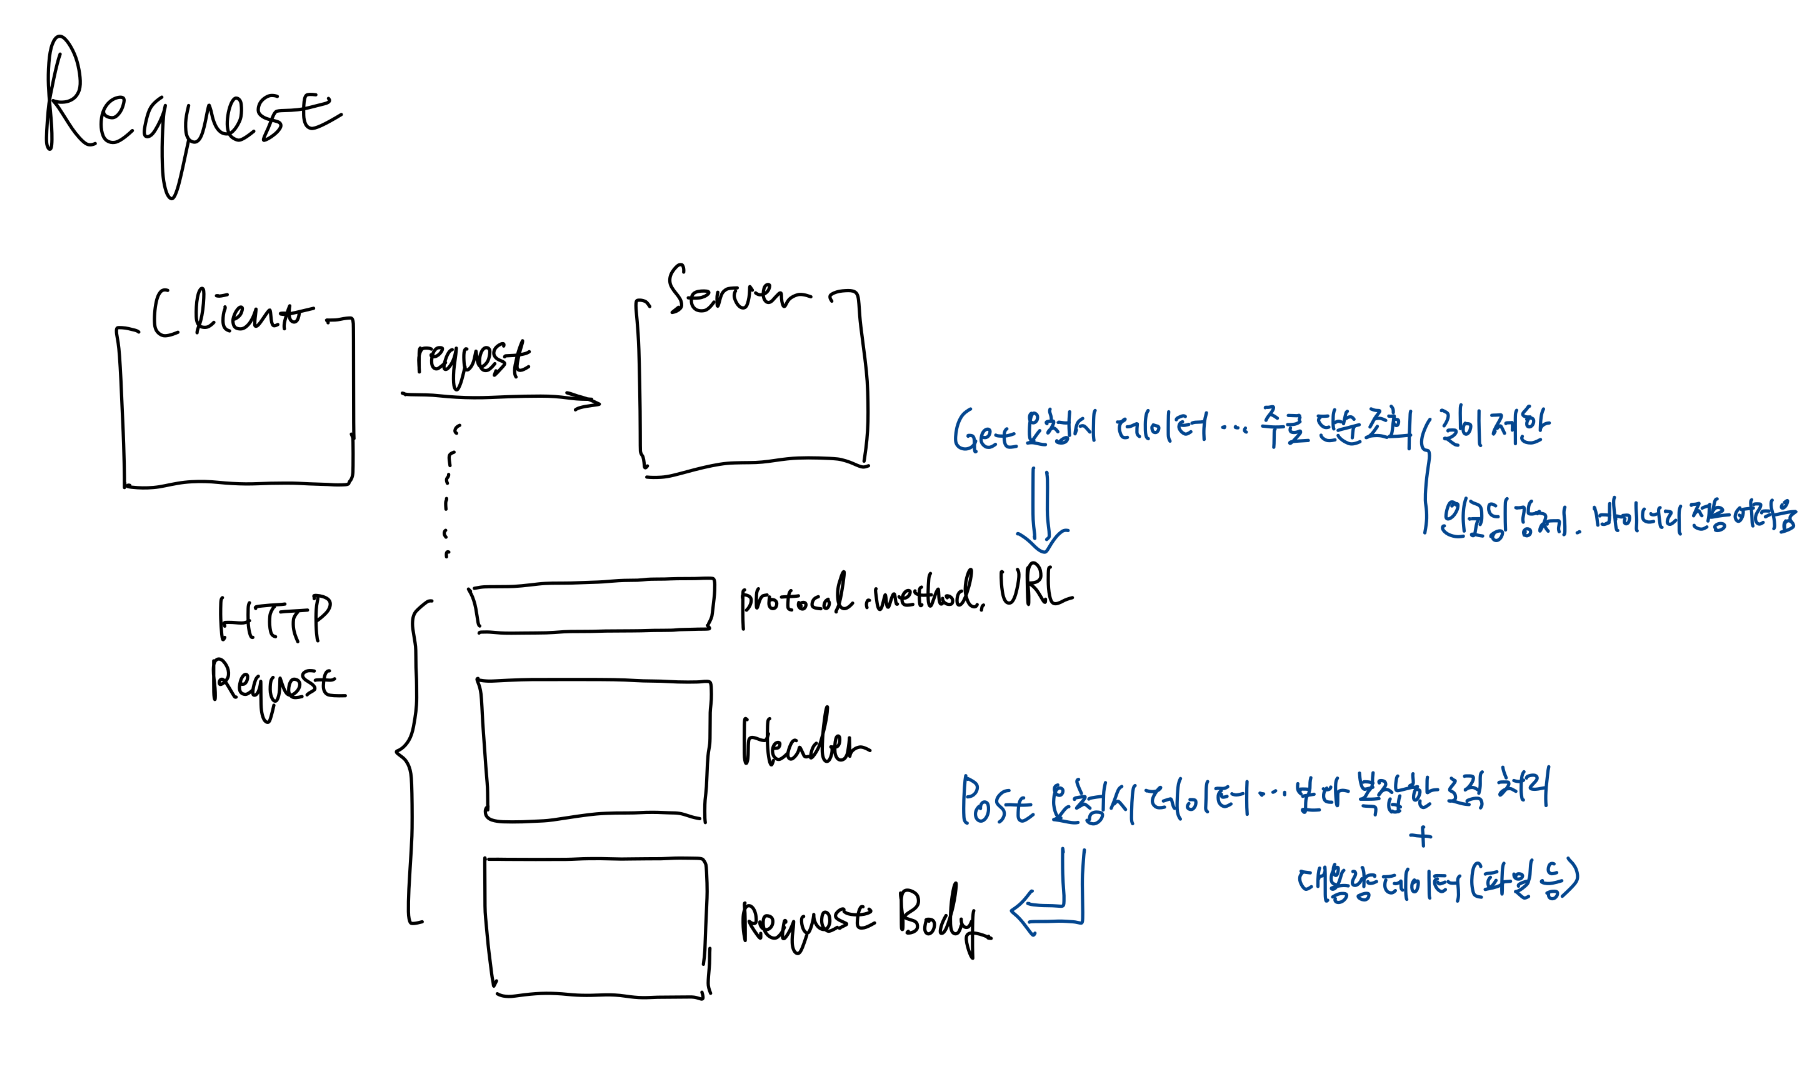 Request
Client
Server
request
Get 요청시 데이터 ... 주로 단순 조회
길이 제한
인코딩 강제. 바이너리 전송 어려움
HTTP
Request
protocol, method, URL
Header
Post 요청시 데이터 ... 보다 복잡한 로직 처리
+
대용량 데이터 (파일 등)
Request Body